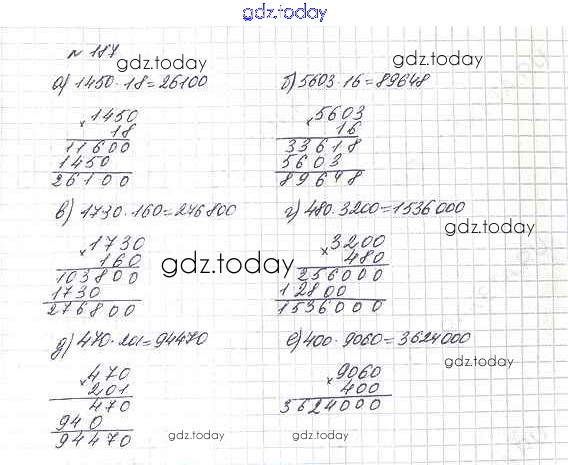 gdz.today
№ 187
gdz.today gdz.today
а) 1450·18=26100 б) 5603·16=89648
×1450 ×5603
18 16
11600 33618
1450 5603
26100 89648
в) 1730·160=276800 г) 480·3200=1536000
gdz.today
×1730 ×3200
160 480
gdz.today
103800 256000
1730 12800
276800 1536000
д) 470·201=94470 е) 400·9060=3624000
gdz.today
×470 ×9060
201 400
470 3624000
940
94470
gdz.today gdz.today